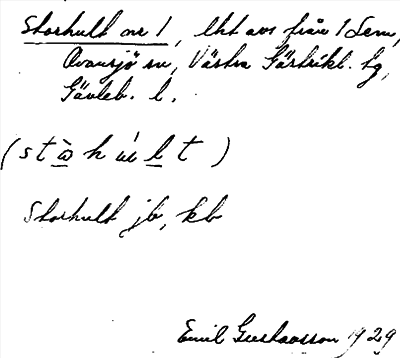 Storhult nr 1, lht avs från 1 Lem,
Ovansjö sn, Västra Gästrikl. tg,
Gävleb. l.
(stà̱húḻt)
Storhult jb, kb
Emil Gustavsson 1929